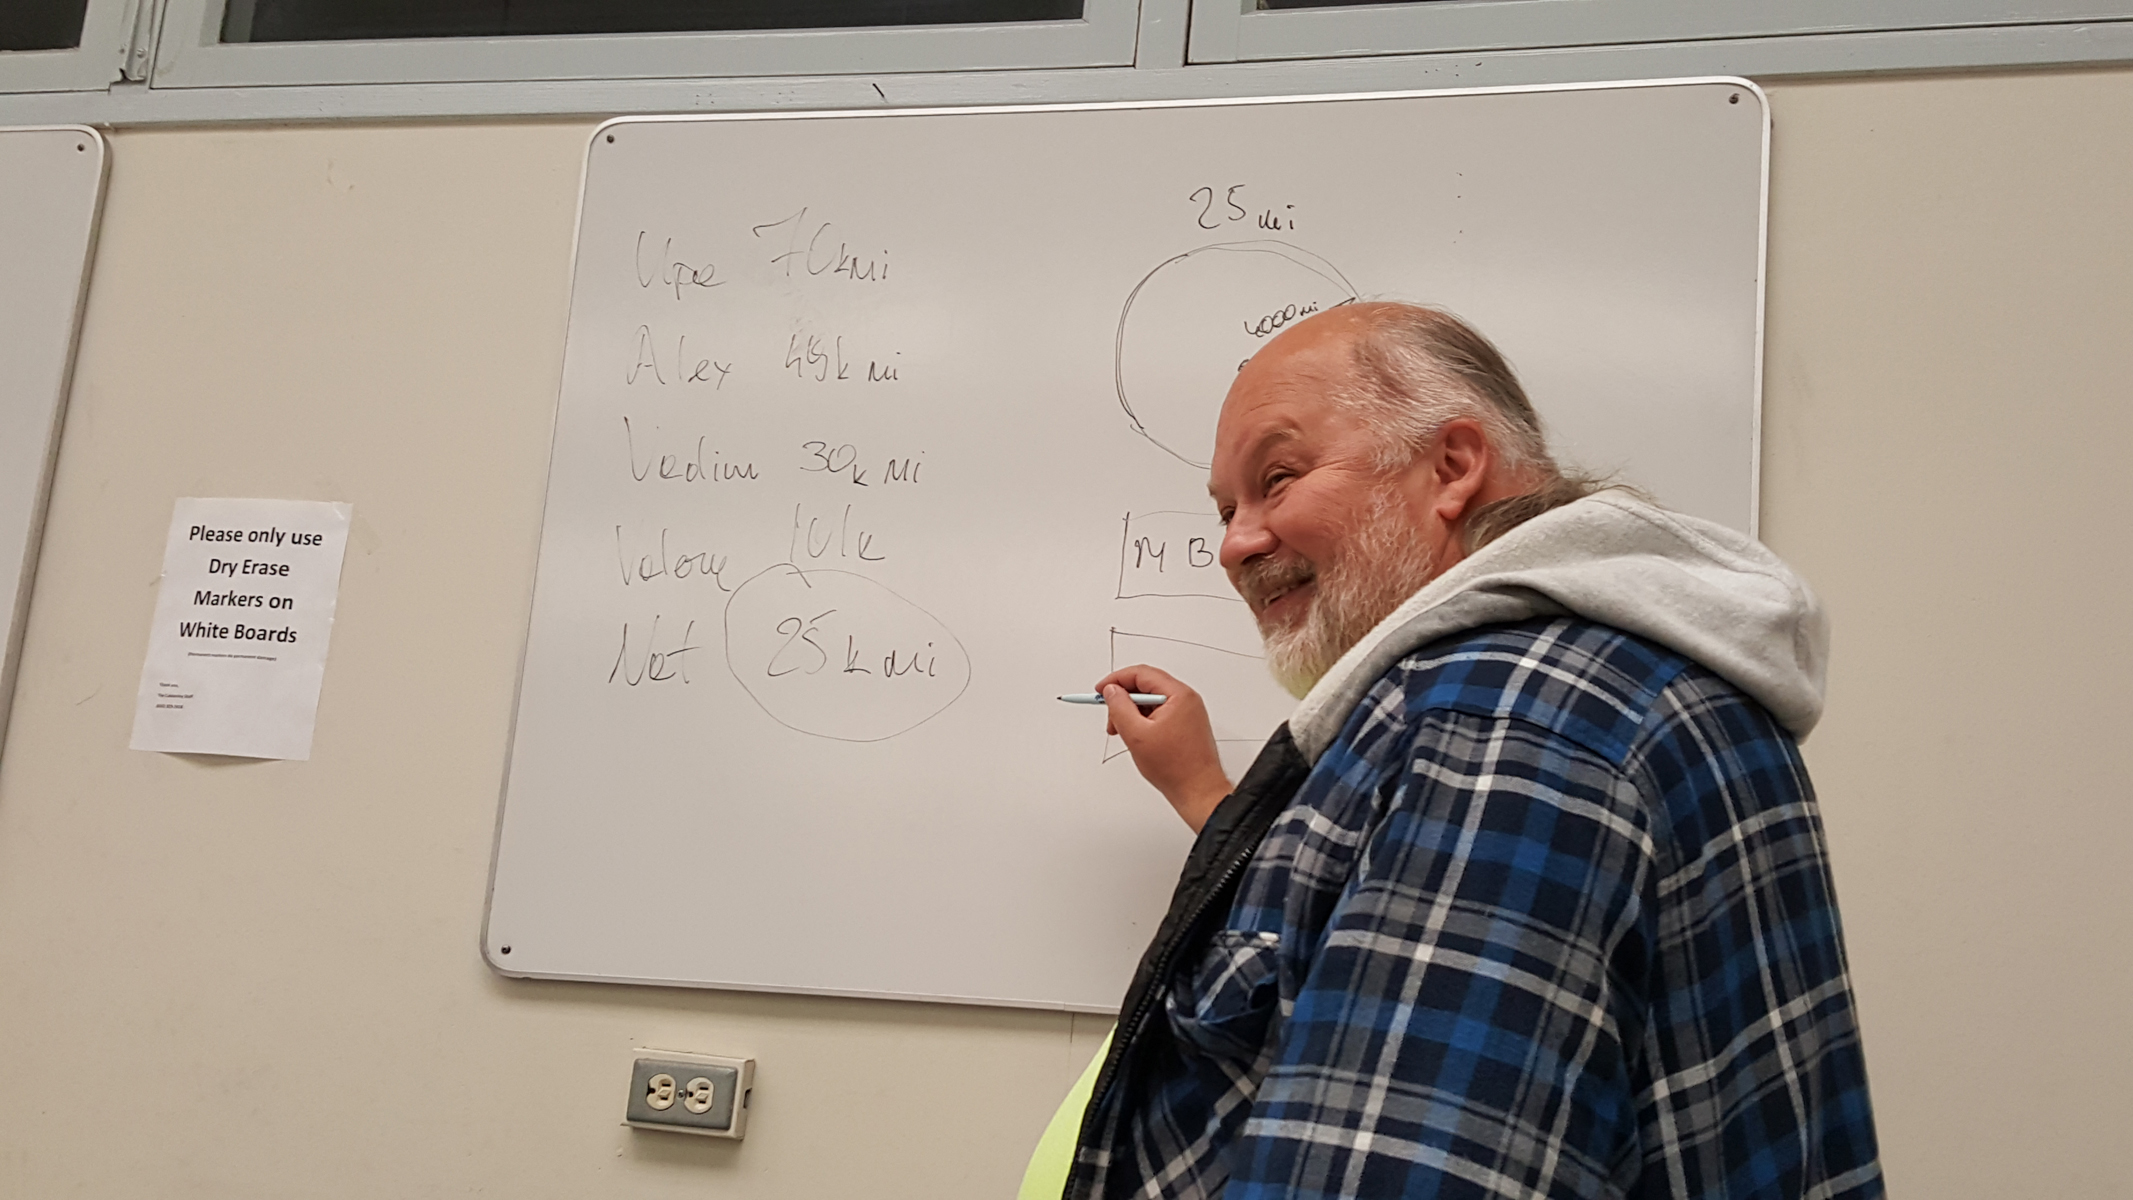 Please only use
Dry Erase
Markers on
White Boards
70kmi
Alex 49k mi
Vadim 30k mi
101k
Nat 25k mi
25 mi
4000 mi
M B